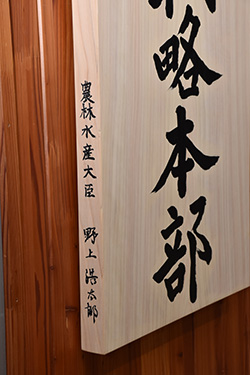 略本部
農林水産大臣 野上浩太郎